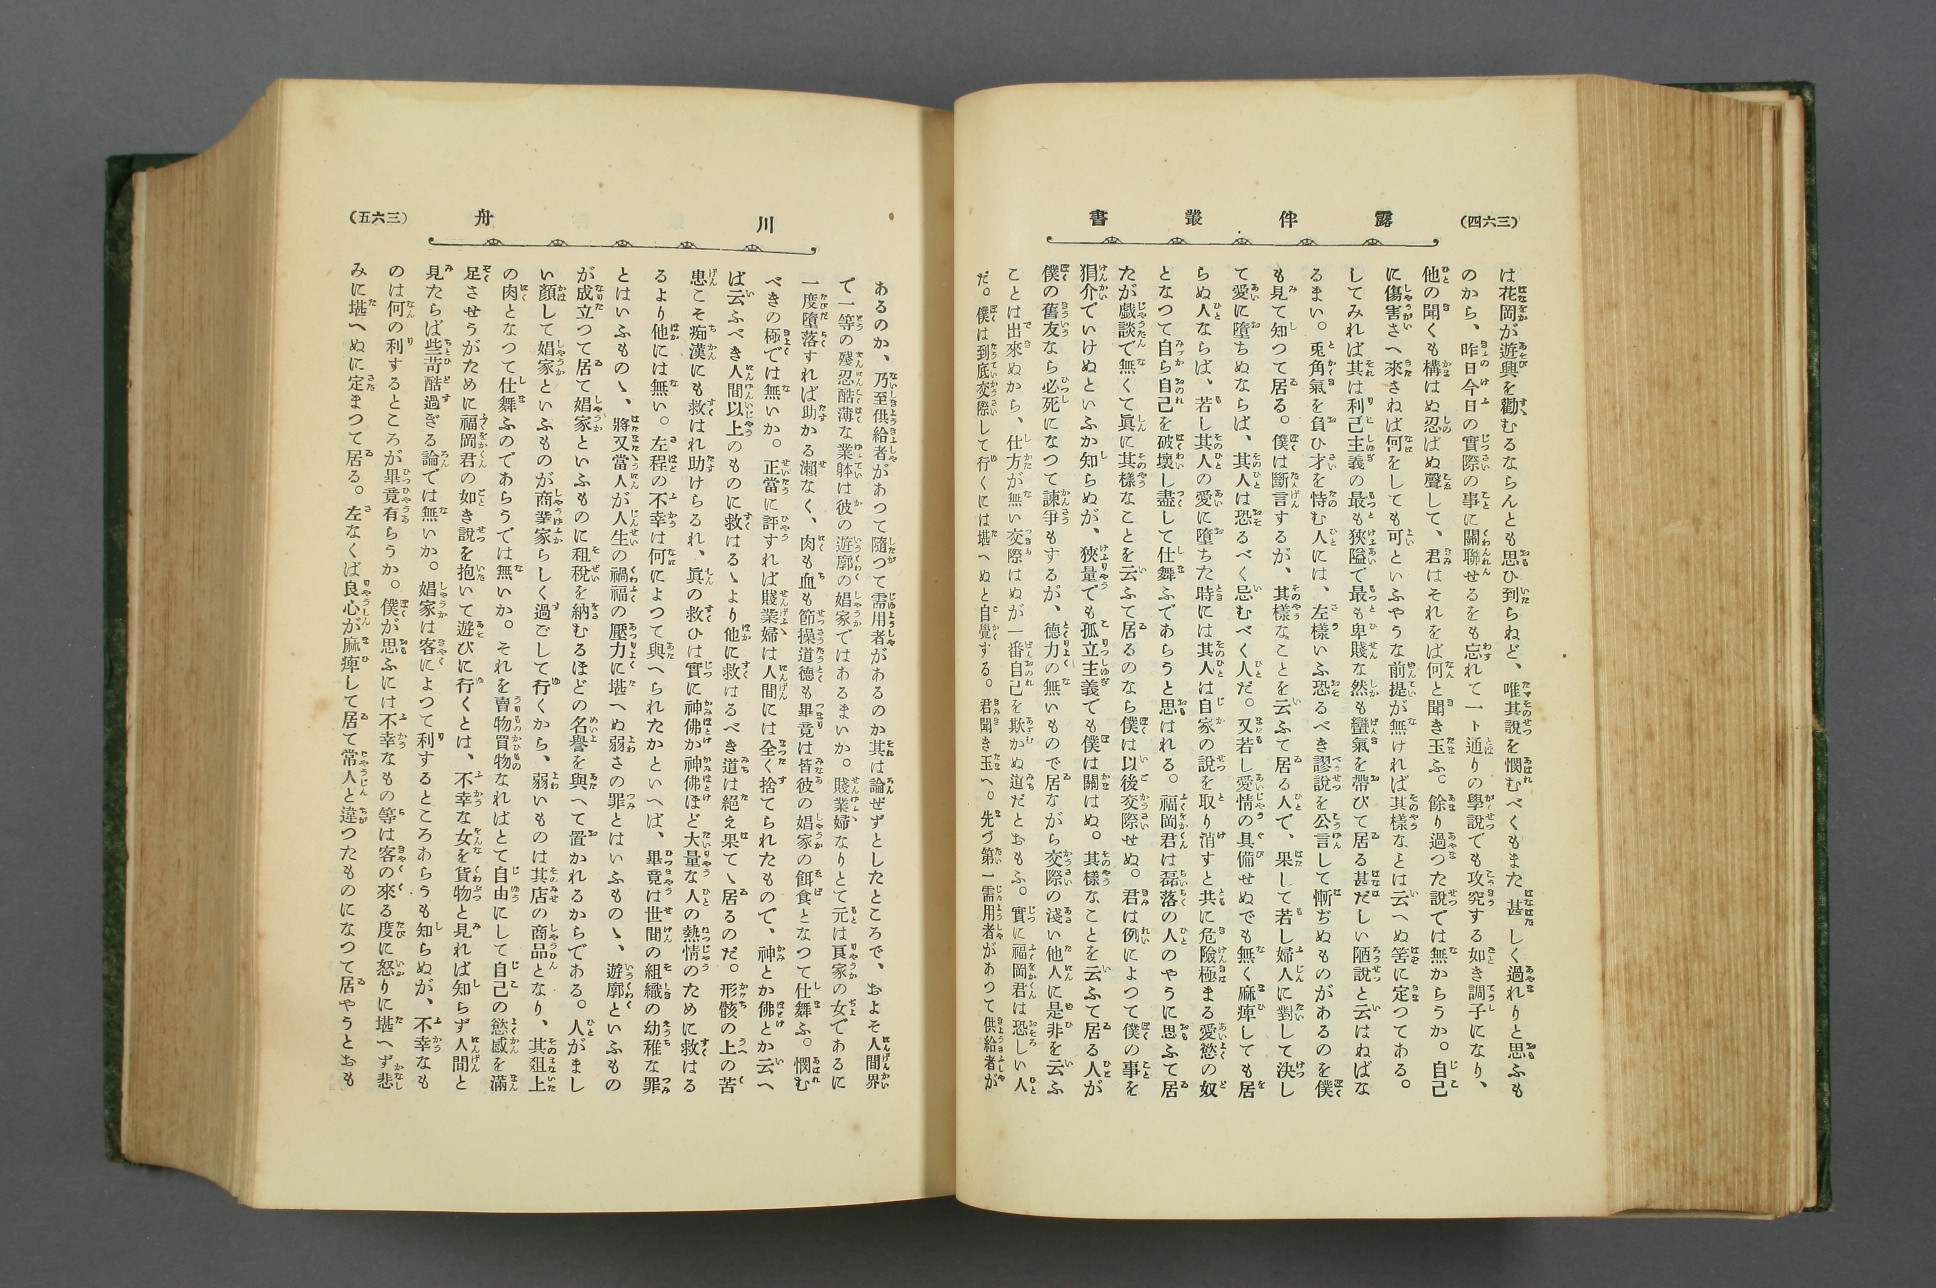 (三六四)
露伴叢書
は花岡が遊興を勸むるならんとも思ひ到らねど、唯其說を憫むべくもまた甚しく過れりと思ふも
のから、昨日今日の實際の事に關聯せるをも忘れて一ト通りの學說でも攻究する如き調子になり、
他の聞くも構はぬ忍ばぬ聲して、君はそれをば何と聞き玉ふ。餘り過つた說では無からうか。自己
に傷害さへ來さねば何をしても可といふやうな前提が無ければ其樣なとは云へぬ筈に定つてある。
してみれば其は利己主義の最も狹隘で最も卑賤な然も蠻氣を帶びて居る甚だしい陋說と云はねばな
るまい。兎角氣を負ひ才を恃む人には、左樣いふ恐るべき謬說を公言して慚ぢぬものがあるのを僕
も見て知つて居る。僕は斷言するが、其樣なことを云ふて居る人で、果して若し婦人に對して決し
て愛に墮ちぬならば、其人は恐るべく忌むべく人だ。又若し愛情の具備せぬでも無く麻痺しても居
らぬ人ならば、若し其人の愛に墮ちた時には其人は自家の說を取り消すと共に危險極まる愛慾の奴
となつて自ら自己を破壞し盡して仕舞ふであらうと思はれる。福岡君は磊落の人のやうに思ふて居
たが戲談で無くて眞に其樣なことを云ふて居るのなら僕は以後交際せぬ。君は例によつて僕の事を
狷介でいけぬといふか知らぬが、狹量でも孤立主義でも僕は關はぬ。其樣なことを云ふて居る人が
僕の舊友なら必死になつて諫爭もするが、德力の無いもので居ながら交際の淺い他人に是非を云ふ
ことは出來ぬから、仕方が無い交際はぬが一番自己を欺かぬ道だとおもふ。實に福岡君は恐しい人
だ。僕は到底交際して行くには堪へぬと自覺する。君聞き玉へ。先づ第一需用者があつて供給者が
川舟
(三六五)
あるのか、乃至供給者があつて隨つて需用者があるのか其は論ぜずとしたところで、およそ人間界
て一等の殘忍酷薄な業躰は彼の遊廓の娼家ではあるまいか。賤業婦なりとて元は良家の女であるに
一度墮落すれば助かる瀨なく、肉も血も節操道德も畢竟は皆彼の娼家の餌食となつて仕舞ふ。憫む
べきの極では無いか。正當に評すれば賤業婦は人間には全く捨てられたもので、神とか佛とか云へ
ば云ふべき人間以上のものに救はるゝより他に救はるべき道は絕え果てゝ居るのだ。形骸の上の苦
患こそ痴漢にも救はれ助けらるれ、眞の救ひは實に神佛か神佛ほど大量な人の熱情のために救はる
るより他には無い。左程の不幸は何によつて與へられたかといへば、畢竟は世間の組織の幼稚な罪
とはいふものゝ、將又當人が人生の禍福の壓力に堪へぬ弱さの罪とはいふものゝ、遊廓といふもの
が成立つて居て娼家といふものに租稅を納むるほどの名譽を與へて置かれるからである。人がまし
い顏して娼家といふものが商業家らしく過ごして行くから、弱いものは其店の商品となり、其爼上
の肉となつて仕舞ふのであらうでは無いか。それを賣物買物なればとて自由にして自己の慾感を滿
足させうがために福岡君の如き說を抱いて遊びに行くとは、不幸な女を貨物と見れば知らず人間と
見たらば些苛酷過ぎる論では無いか。娼家は客によつて利するところあらうも知らぬが、不幸なも
のは何の利するところが畢竟有らうか。僕が思ふには不幸なもの等は客の來る度に怒りに堪へず悲
みに堪へぬに定まつて居る。左なくば良心が麻痺して居て常人と違つたものになつて居やうとおも